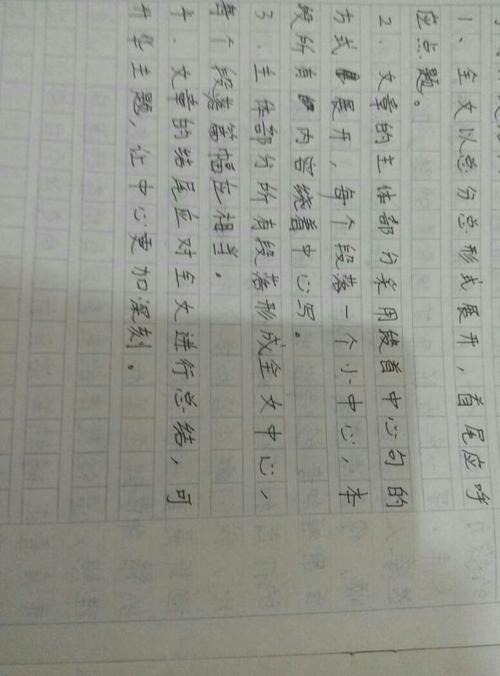 1、全文以总分总形式展开，首尾应呼
应点题。
2．文章的主体部分采用绕着中心句的
方式展开，每个段落一个小中心，本
段所有内容绕着中心写。
3．主体部分所有段落形成全文中心，
每个段落篇幅应相当。
4．文章的结尾应对全文进行总结，可
升华主题，让中心更加深刻。